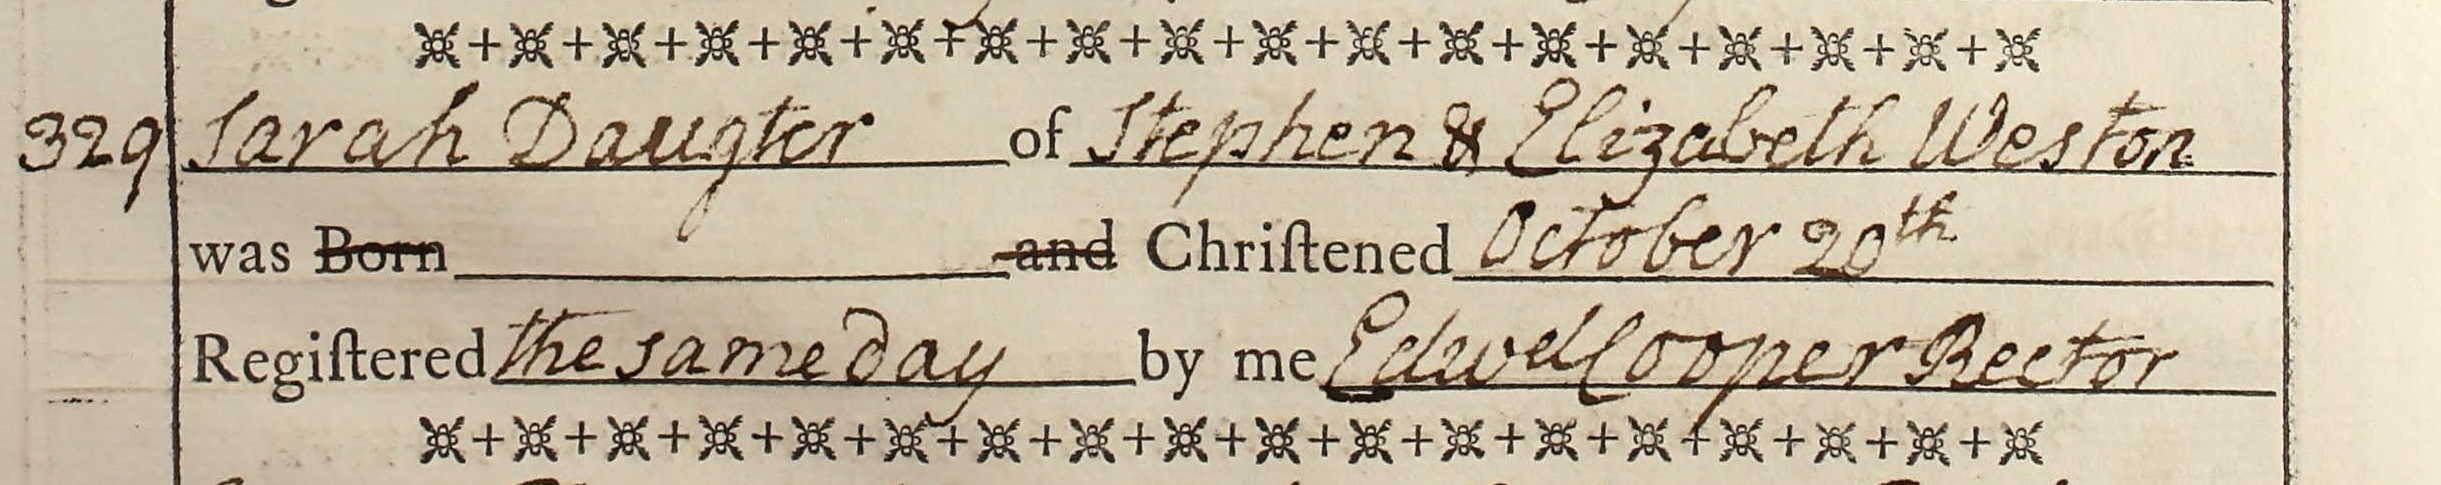 329 Sarah Daugter of Stephen & Elizabeth Weston
was Born and Chriſtened October 20th
Regiſtered the same day by me Edwd Cooper Rector